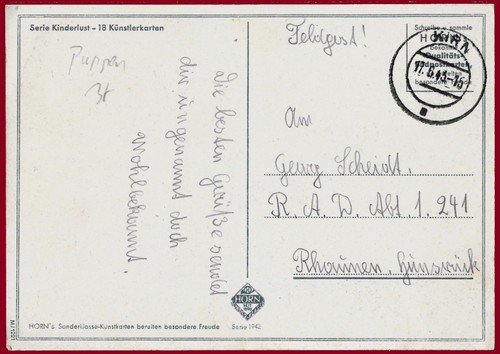 Serie Kinderlust – 18 Künstlerkarten
Puppen
Die besten Grüße sendet
dir ungenannt doch
wohlbekannt.
Feldpost!
Schreibe u. sammle
HORN'S
bekannte
Qualitäts-
Feldpostkarten
bereiten
besondere Freude
KIRN
17.6.43-16
An
Georg Scheidt.
R. A. D. Abt 1. 241
Rhaunen, Hunsrück
HORN
HORN's Sonderklasse-Kunstkarten bereiten besondere Freude Serie 1942